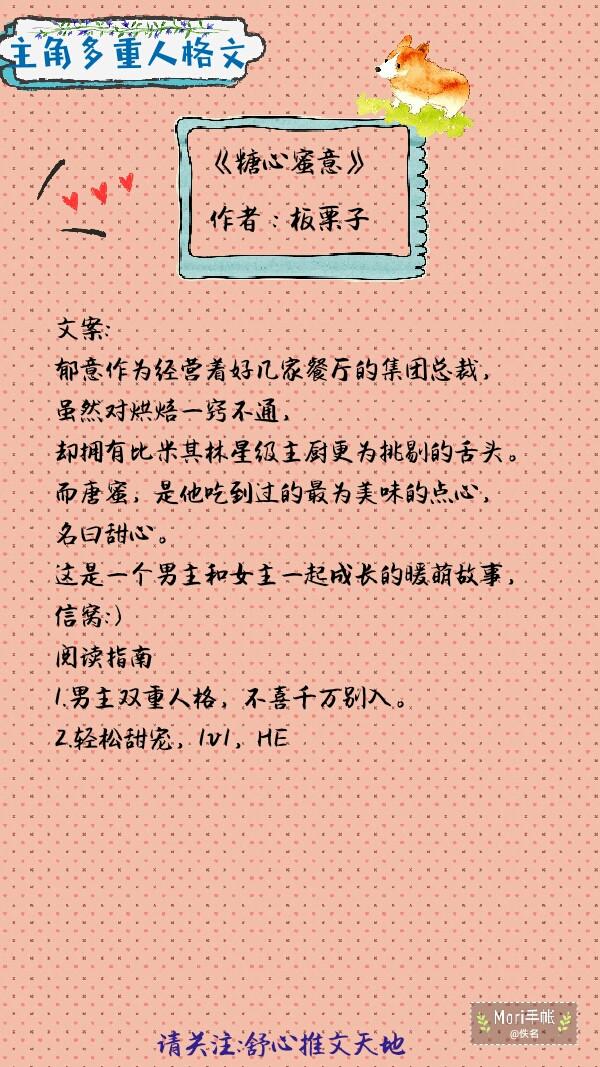 主角多重人格文
《糖心蜜意》
作者：板栗子
文案:
郁意作为经营着好几家餐厅的集团总裁，
虽然对烘焙一窍不通，
却拥有比米其林星级主厨更为挑剔的舌头。
而唐蜜，是他吃到过的最为美味的点心，
名曰甜心。
这是一个男主和女主一起成长的暖萌故事，
信窝:)
阅读指南
1.男主双重人格，不喜千万别入。
2.轻松甜宠，1v1，HE
Mori手帐
@佚名
请关注:舒心推文天地